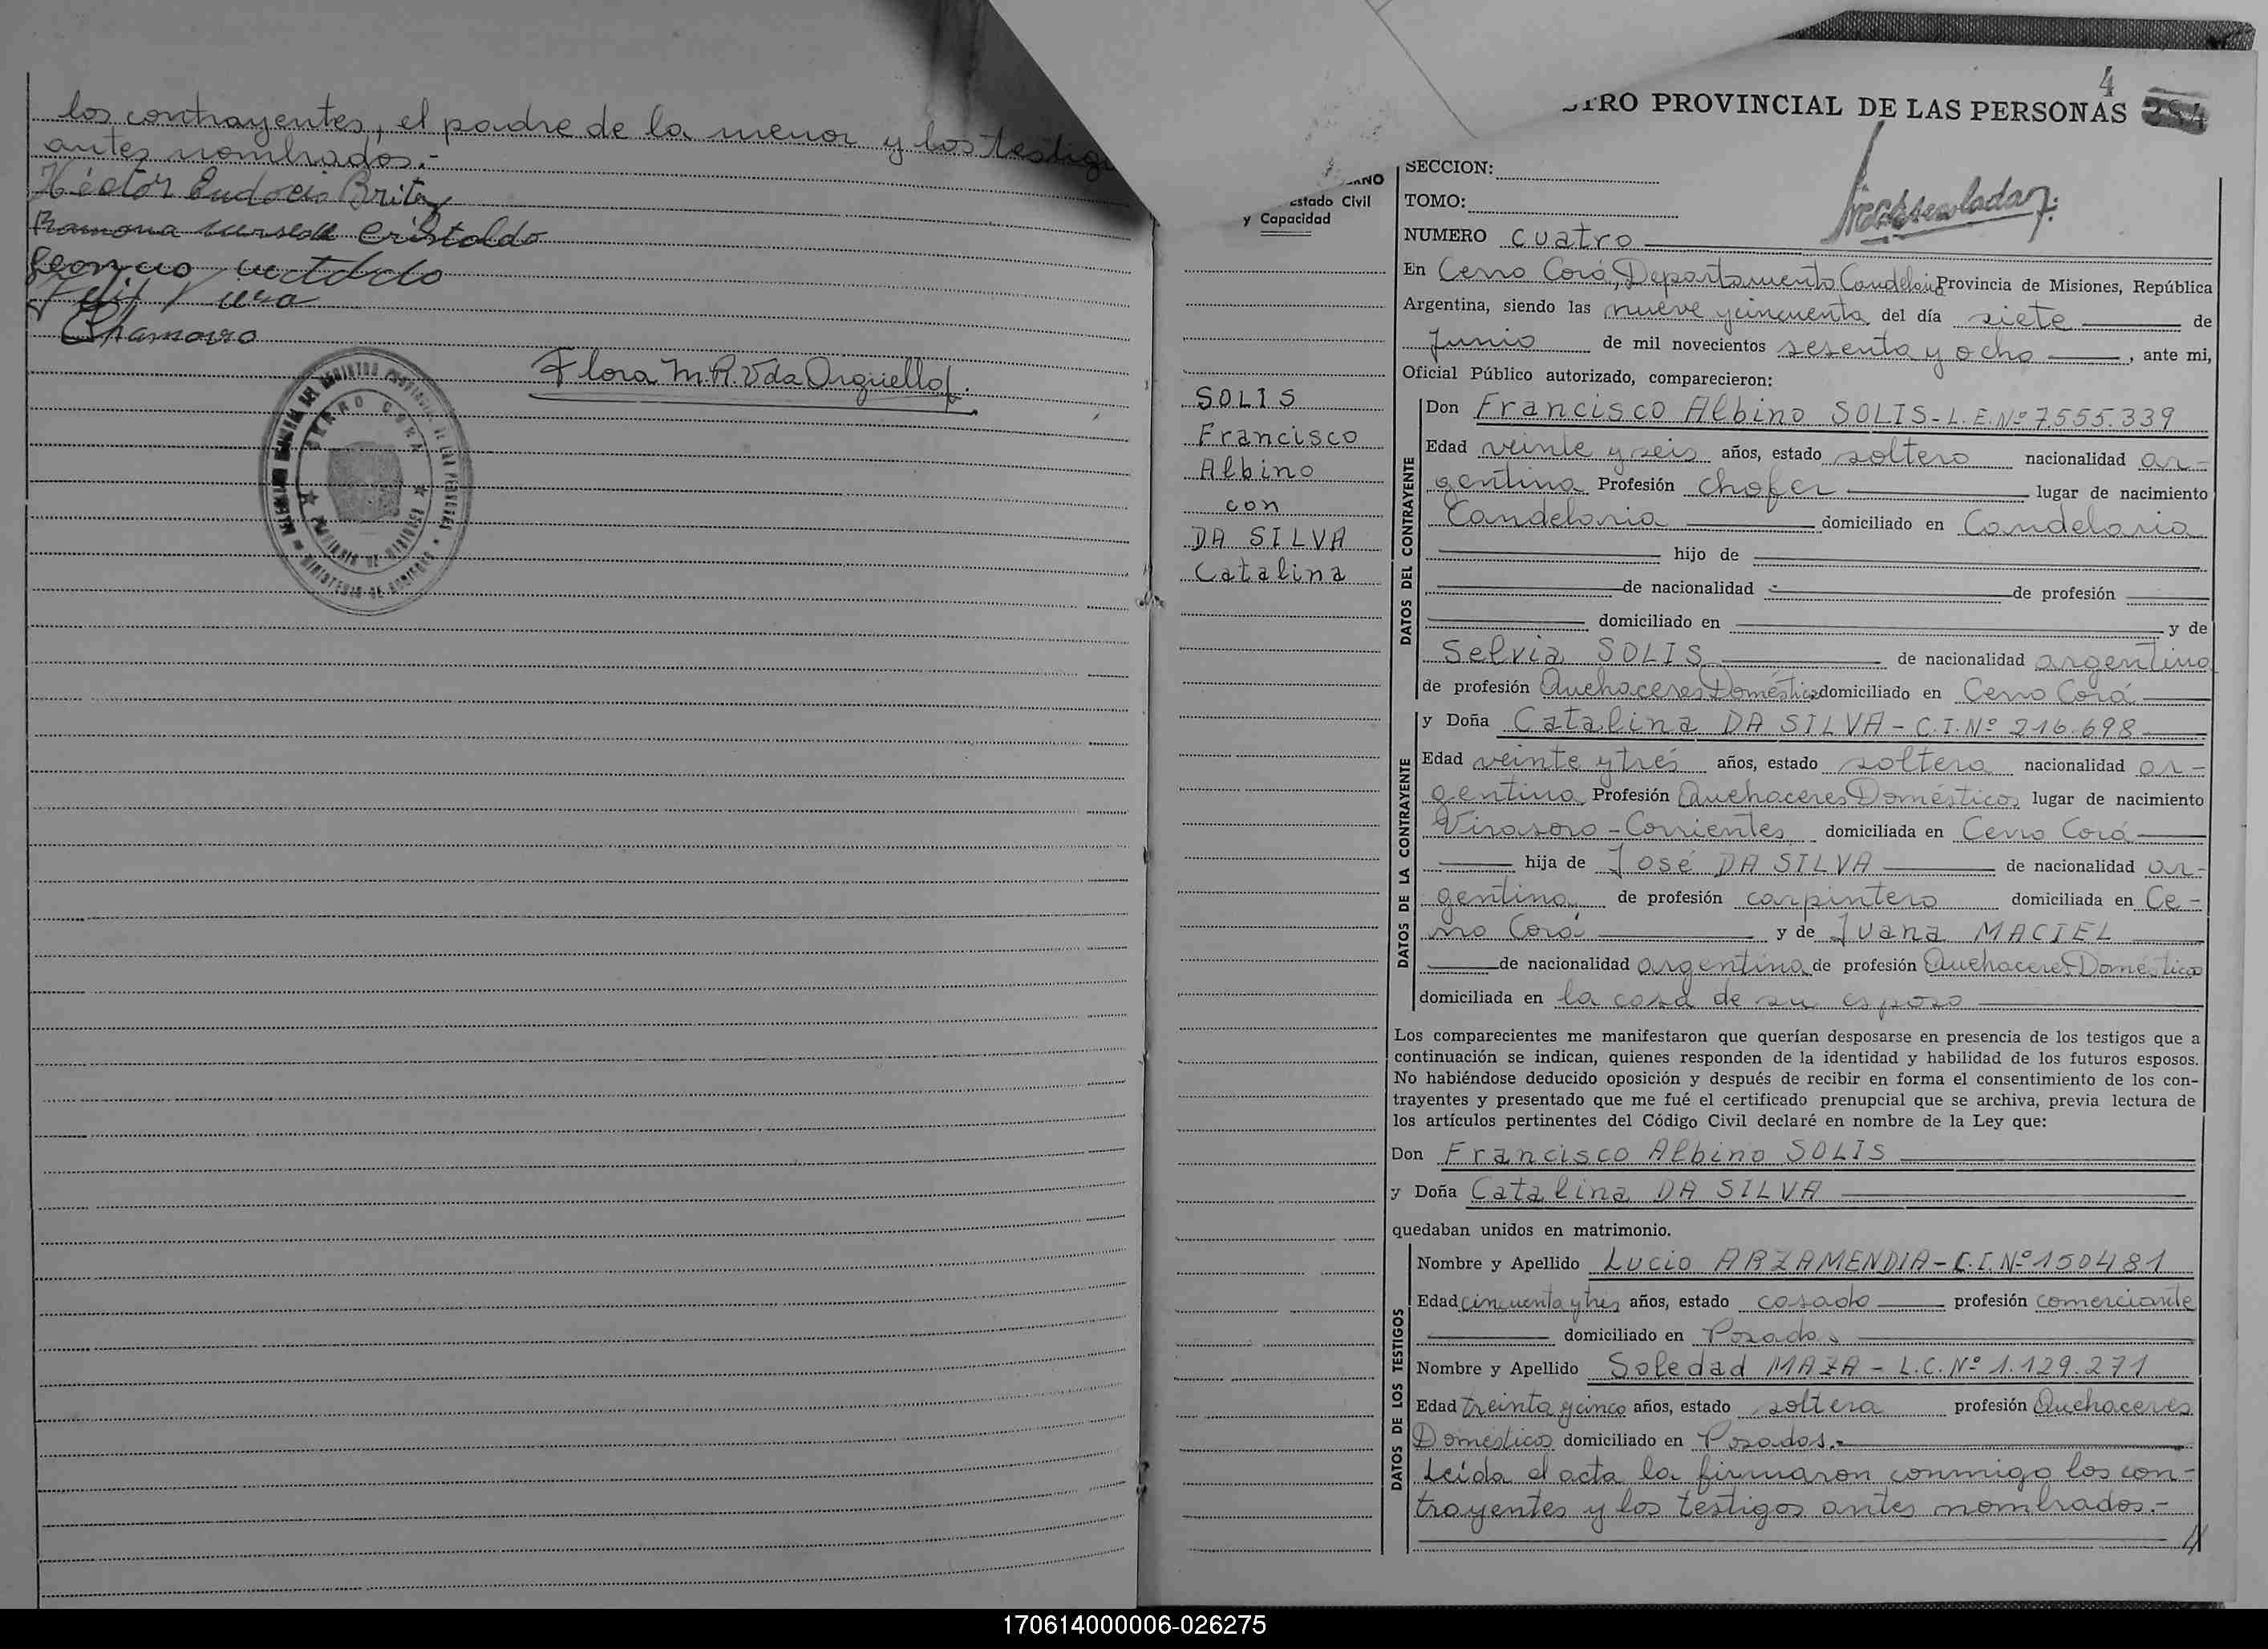 los contrayentes, el padre de la menor y los testigo
antes nombrados.-
Héctor Eudocio Britez
Ramona Cristaldo
Chamorro
Flora M. R. Vda Orguello
CERRO CORÁ
PROVINCIA DE MISIONES
MINISTERIO DE GOBIERNO
4
TRO PROVINCIAL DE LAS PERSONAS
Estado Civil
y Capacidad
SOLIS
Francisco
Albino
con
DA SILVA
Catalina
SECCION:
TOMO:
NUMERO cuatro
En Cerro Corá, Departamento Candelaria Provincia de Misiones, República
Argentina, siendo las nueve y cincuenta del día siete de
Junio de mil novecientos sesenta y ocho, ante mi,
Oficial Público autorizado, comparecieron:
DATOS DEL CONTRAYENTE
Don Francisco Albino SOLIS - L.E. Nº 7555.339
Edad veinte y seis años, estado soltero nacionalidad ar-
gentina Profesión chofer lugar de nacimiento
Candelaria domiciliado en Candelaria
hijo de
de nacionalidad de profesión
domiciliado en y de
Selvia SOLIS de nacionalidad argentina
de profesión Quehaceres Domésticos domiciliado en Cerro Corá
DATOS DE LA CONTRAYENTE
y Doña Catalina DA SILVA - C.I. Nº 216.698
Edad veinte y trés años, estado soltera nacionalidad ar-
gentina Profesión Quehaceres Domésticos lugar de nacimiento
Virasoro - Corrientes domiciliada en Cerro Corá
hija de José DA SILVA de nacionalidad ar-
gentina de profesión carpintero domiciliada en Ce-
rro Corá y de Juana MACIEL
de nacionalidad argentina de profesión Quehaceres Domésticos
domiciliada en la casa de su esposo
Los comparecientes me manifestaron que querían desposarse en presencia de los testigos que a
continuación se indican, quienes responden de la identidad y habilidad de los futuros esposos.
No habiéndose deducido oposición y después de recibir en forma el consentimiento de los con-
trayentes y presentado que me fué el certificado prenupcial que se archiva, previa lectura de
los artículos pertinentes del Código Civil declaré en nombre de la Ley que:
Don Francisco Albino SOLIS
y Doña Catalina DA SILVA
quedaban unidos en matrimonio.
DATOS DE LOS TESTIGOS
Nombre y Apellido Lucio ARZAMENDIA - C.I. Nº 150481
Edad cincuenta y tres años, estado casado profesión comerciante
domiciliado en Posadas
Nombre y Apellido Soledad MAZA - L.C. Nº 1.129.271
Edad treinta y cinco años, estado soltera profesión Quehaceres
Domésticos domiciliado en Posadas.-
Leída el acta la firmaron conmigo los con-
trayentes y los testigos antes nombrados.-
170614000006-026275